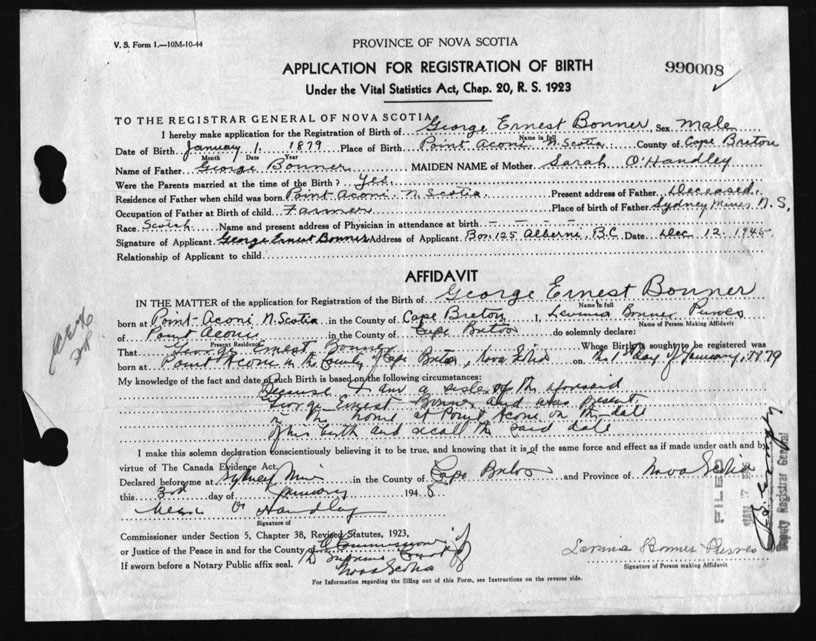 V. S. Form 1.—10M-10-44
PROVINCE OF NOVA SCOTIA
APPLICATION FOR REGISTRATION OF BIRTH
990008
Under the Vital Statistics Act, Chap. 20, R. S. 1923
TO THE REGISTRAR GENERAL OF NOVA SCOTIA
I hereby make application for the Registration of Birth of George Ernest Bonner Sex Male
Name in full
Date of Birth January 1. 1879 Place of Birth Point Aconi N. Scotia County of Cape Breton
Month Date Year
Name of Father George Bonner MAIDEN NAME of Mother Sarah O'Handley
Were the Parents married at the time of the Birth? Yes.
Residence of Father when child was born Point Aconi N. Scotia. Present address of Father Deceased.
Occupation of Father at Birth of child Farmer Place of birth of Father Sydney Mines N. S.
Race Scotch Name and present address of Physician in attendance at birth – – – –
Signature of Applicant George Ernest Bonner Address of Applicant Box 125 Alberni, B.C. Date Dec 12. 1945
Relationship of Applicant to child
AFFIDAVIT
IN THE MATTER of the application for Registration of the Birth of George Ernest Bonner
Name in full
born at Point Aconi N. Scotia in the County of Cape Breton I, Bonner Purves
Name of Person Making Affidavit
of Point Aconi in the County of Cape Breton do solemnly declare:
Present Residence
That George Ernest Bonner Whose Birth is sought to be registered was
born at Point Aconi in the County of Cape Breton, Nova Scotia on the 1st day of January, 1879
My knowledge of the fact and date of such Birth is based on the following circumstances:
Because I am a sister of the aforesaid
George Ernest Bonner and was present
in the home at Point Aconi on the date
of his birth and recall the said date
I make this solemn declaration conscientiously believing it to be true, and knowing that it is of the same force and effect as if made under oath and by
virtue of The Canada Evidence Act.
Declared before me at Sydney Mines in the County of Cape Breton and Province of Nova Scotia
this 3rd day of January 194
O'Handley
Signature of
Commissioner under Section 5, Chapter 38, Revised Statutes, 1923,
or Justice of the Peace in and for the County of
A Commissioner of
the Supreme Court of
Nova Scotia
If sworn before a Notary Public affix seal.
Purves
Signature of Person making Affidavit
For Information regarding the filling out of this Form, see Instructions on the reverse side.
FILED
Deputy Registrar General